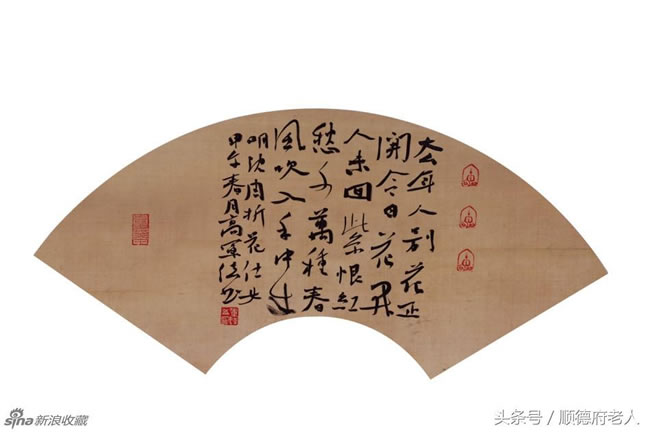 去年人别花正
開今日花开
人未回紫恨紅
愁千萬種春
風吹入手中来
明沈周折花仕女
甲午春月高軍法书
sina新浪收藏
头条号 / 顺德府老人